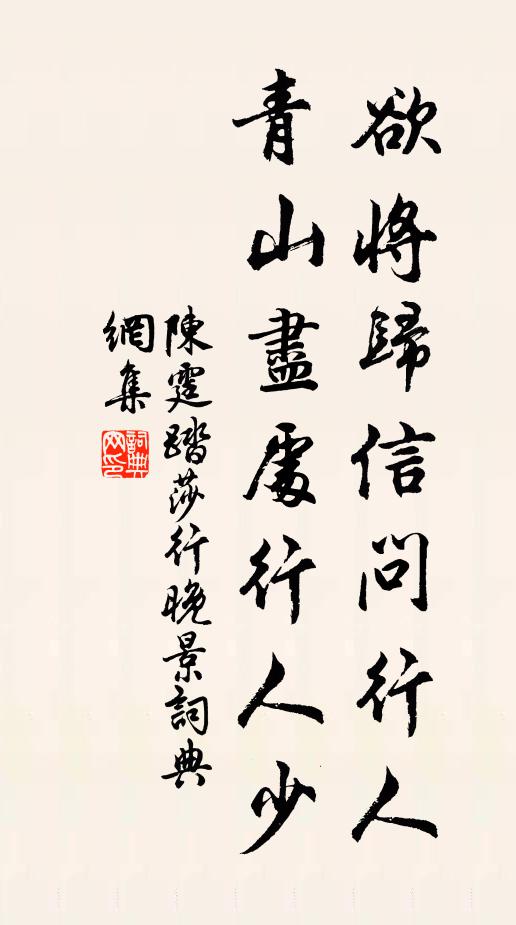 欲將歸信問行人
青山盡處行人少
陳霆踏莎行晚景詞典
網集
詞典
网